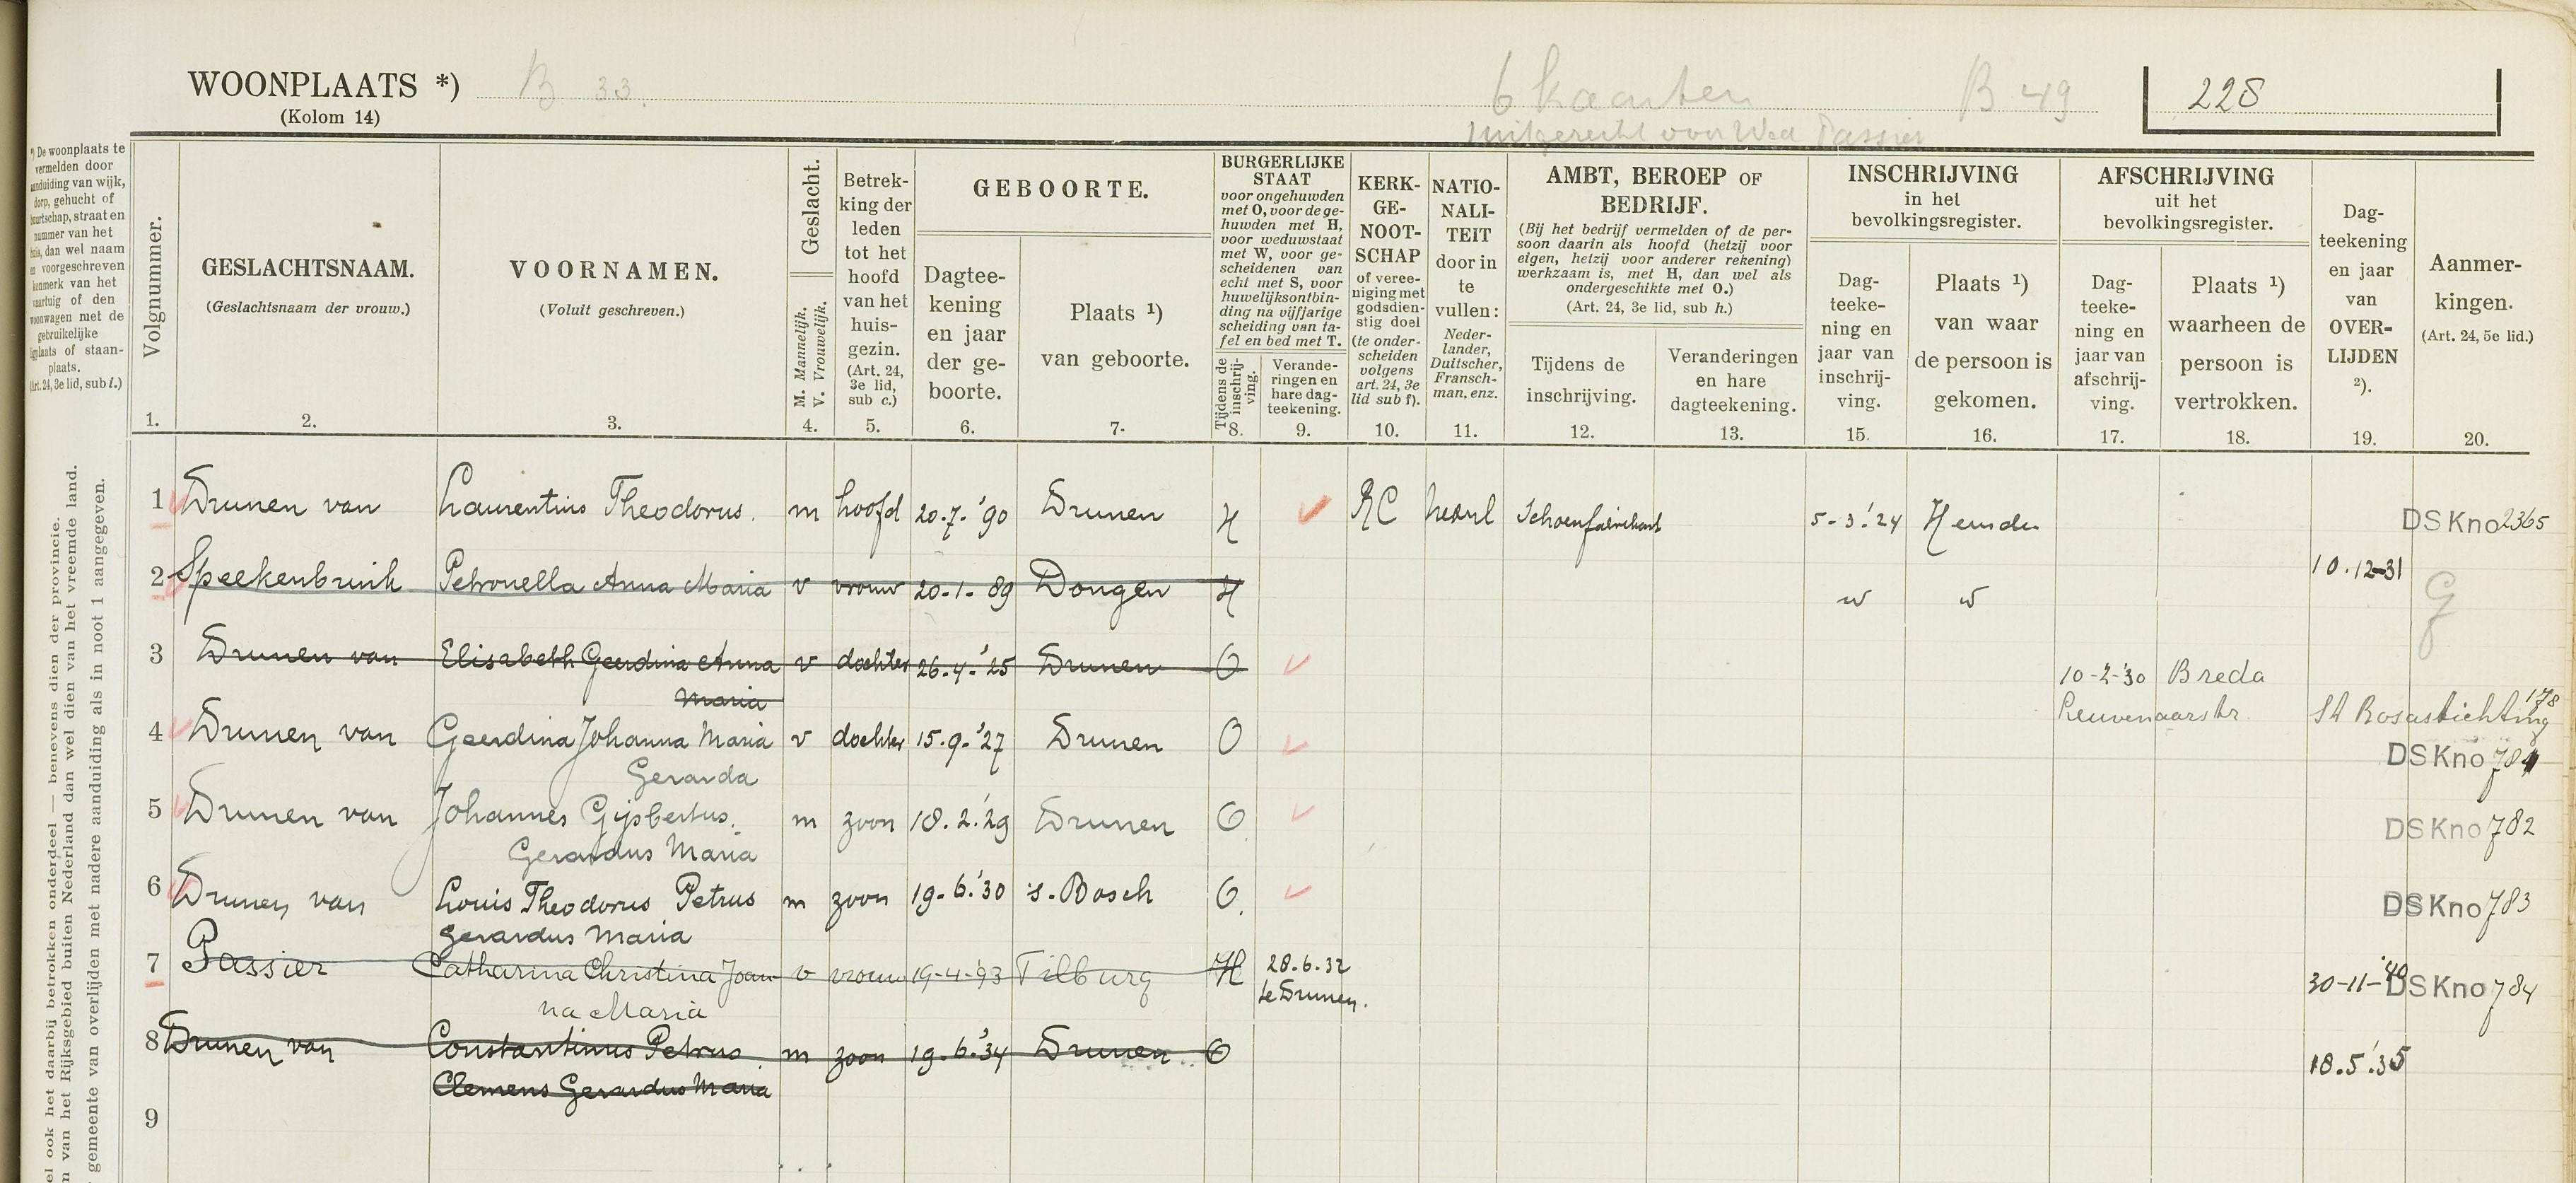 WOONPLAATS *) B 33. 6 kaarten B 49 228
(Kolom 14)
*) De woonplaats te
vermelden door
aanduiding van wijk,
dorp, gehucht of
buurtschap, straat en
nummer van het
huis, dan wel naam
en voorgeschreven
kenmerk van het
vaartuig of den
woonwagen met de
gebruikelijke
ligplaats of staan-
plaats.
(Art. 24, 3e lid, sub l.)
el ook het daarbij betrokken onderdeel — benevens dien der provincie.
n van het Rijksgebied buiten Nederland dan wel dien van het vreemde land.
gemeente van overlijden met nadere aanduiding als in noot 1 aangegeven.
Volgnummer.
1.
GESLACHTSNAAM.
(Geslachtsnaam der vrouw.)
2.
VOORNAMEN.
(Voluit geschreven.)
3.
Geslacht.
M. Mannelijk.
V. Vrouwelijk.
4.
Betrek-
king der
leden
tot het
hoofd
van het
huis-
gezin.
(Art. 24,
3e lid,
sub c.)
5.
GEBOORTE.
Dagtee-
kening
en jaar
der ge-
boorte.
6.
Plaats 1)
van geboorte.
7.
BURGERLIJKE
STAAT
voor ongehuwden
met O, voor de ge-
huwden met H,
voor weduwstaat
met W, voor ge-
scheidenen van
echt met S, voor
huwelijksontbin-
ding na vijfjarige
scheiding van ta-
fel en bed met T.
Tijdens de
inschrij-
ving.
8.
Verande-
ringen en
hare dag-
teekening.
9.
KERK-
GE-
NOOT-
SCHAP
of veree-
niging met
godsdien-
stig doel
(te onder-
scheiden
volgens
art. 24, 3e
lid sub f).
10.
NATIO-
NALI-
TEIT
door in
te
vullen:
Neder-
lander,
Duitscher,
Fransch-
man, enz.
11.
AMBT, BEROEP OF
BEDRIJF.
(Bij het bedrijf vermelden of de per-
soon daarin als hoofd (hetzij voor
eigen, hetzij voor anderer rekening)
werkzaam is, met H, dan wel als
ondergeschikte met O.)
(Art. 24, 3e lid, sub h.)
Tijdens de
inschrijving.
12.
Veranderingen
en hare
dagteekening.
13.
INSCHRIJVING
in het
bevolkingsregister.
Dag-
teeke-
ning en
jaar van
inschrij-
ving.
15.
Plaats 1)
van waar
de persoon is
gekomen.
16.
AFSCHRIJVING
uit het
bevolkingsregister.
Dag-
teeke-
ning en
jaar van
afschrij-
ving.
17.
Plaats 1)
waarheen de
persoon is
vertrokken.
18.
Dag-
teekening
en jaar
van
OVER-
LIJDEN
2).
19.
Aanmer-
kingen.
(Art. 24, 5e lid.)
20.
1 Drunen van Laurentius Theodorus. m hoofd 20.7.'90 Drunen H RC Nederl Schoenfabrikant 5-3.'24 Heusden DSKno 2365
2 Speekenbrink Petronella Anna Maria v vrouw 20.1.89 Dongen H 10.12-31 G
3 Drunen van Elisabeth Geerdina Anna v dochter 26.4.'25 Drunen O 10-2-'30 Breda
Maria Leuvenaarstr. 178 St Rosastichting
4 Drunen van Geerdina Johanna Maria v dochter 15.9.'27 Drunen O DSKno 781
Gerarda
5 Drunen van Johannes Gijsbertus. m zoon 18.2.'29 Drunen O DSKno 782
Gerardus Maria
6 Drunen van Louis Theodorus Petrus m zoon 19.6.'30 's.Bosch O. DSKno 783
Gerardus Maria
7 Passier Catharina Christina Joan- v vrouw 19-4-'93 Tilburg H 28.6.32 30-11-'40 DSKno 784
na Maria te Drunen.
8 Drunen van Constantinus Petrus m zoon 19.6.'34 Drunen O 18.5.'35
Clemens Gerardus Maria
9